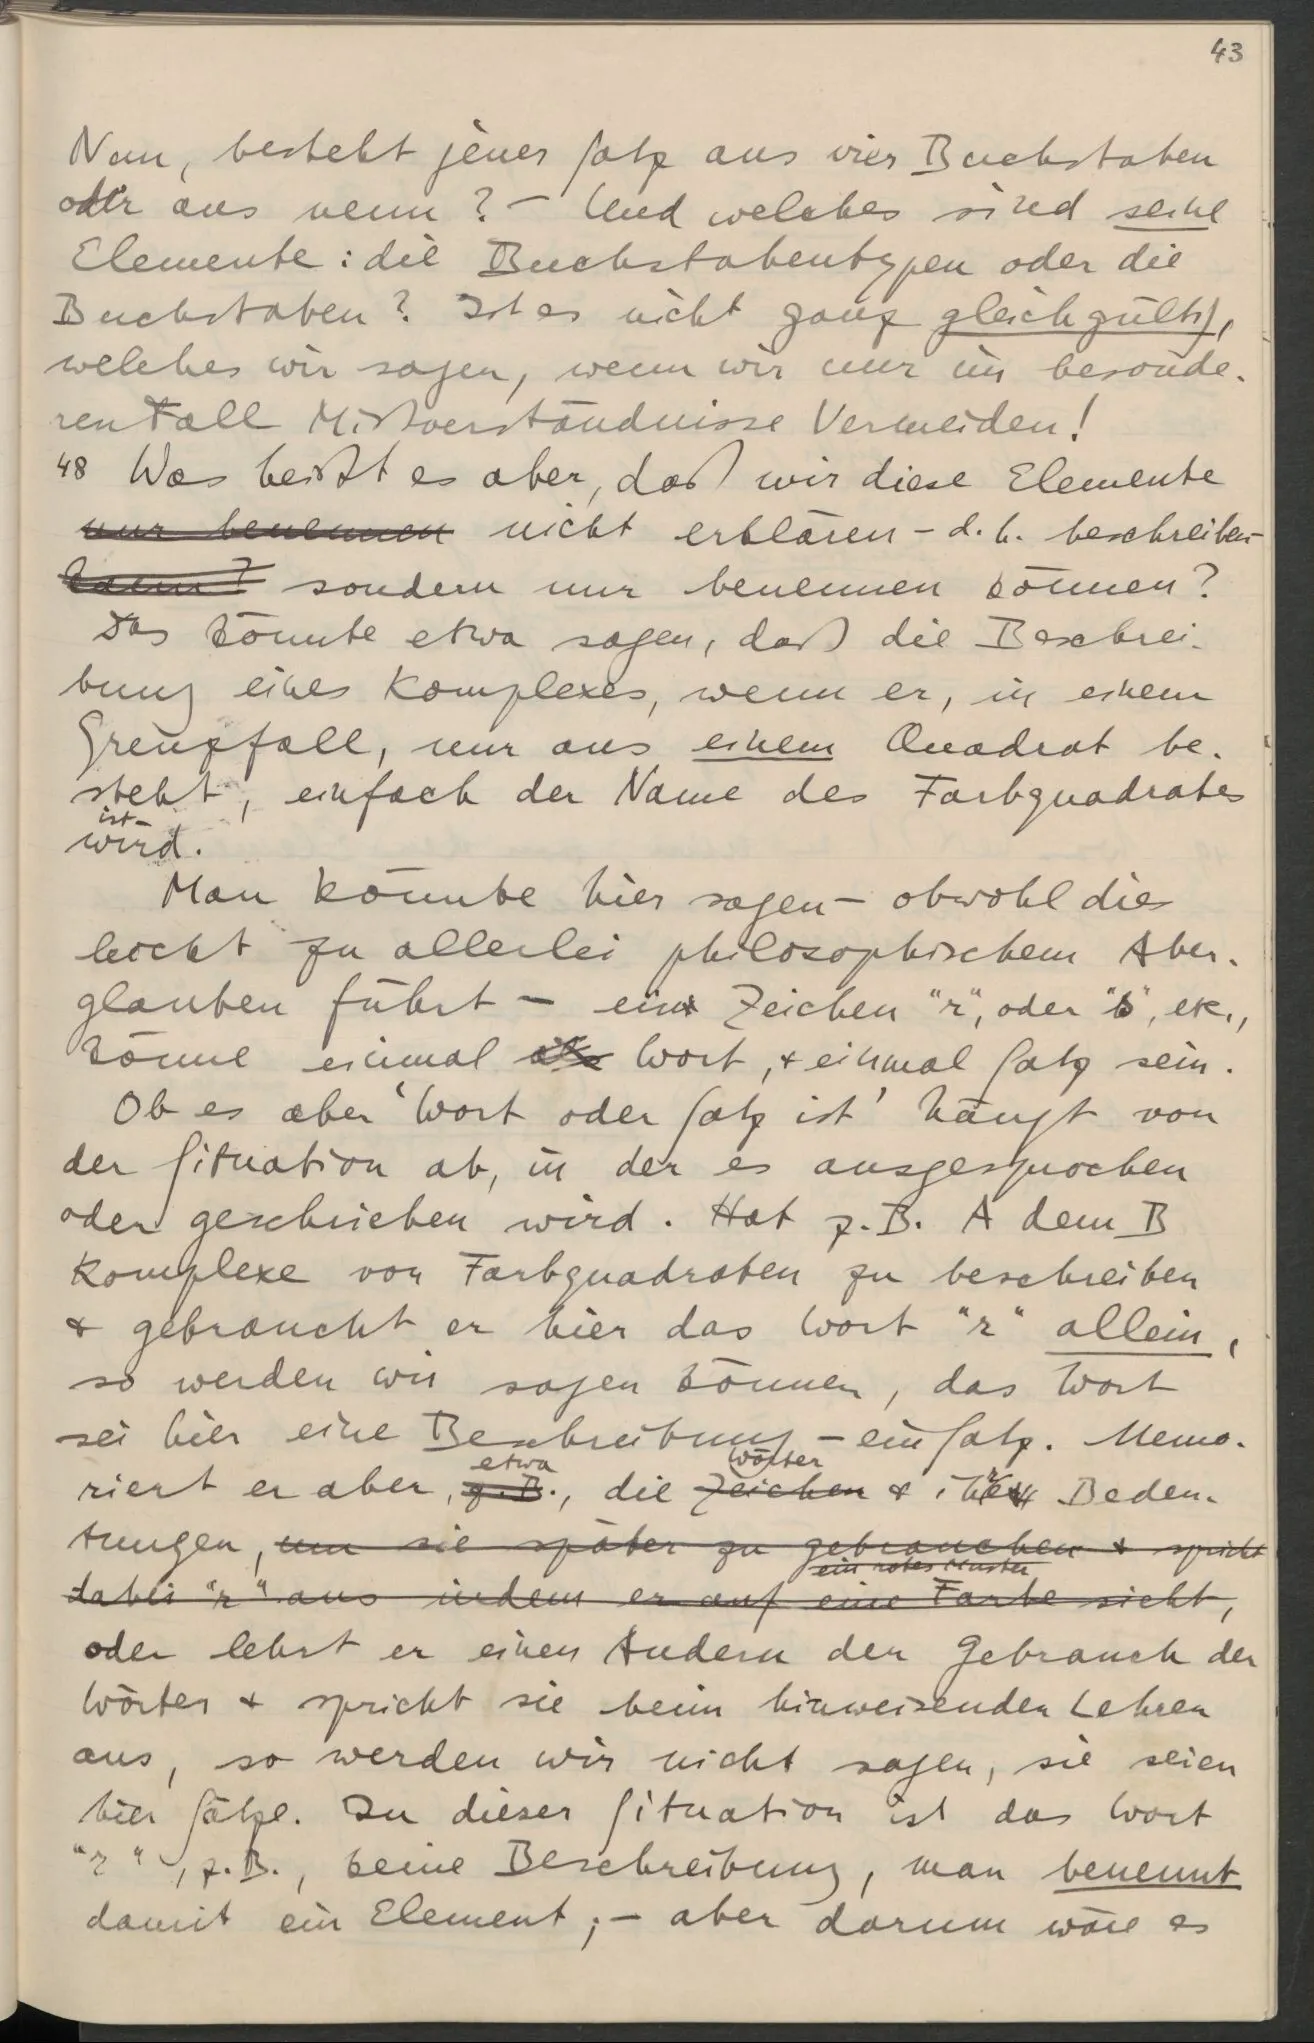 43
Nun, besteht jener Satz aus vier Buchstaben
oder aus neun? – Und welches sind seine
Elemente: die Buchstabentypen oder die
Buchstaben? Ist es nicht ganz gleichgültig,
welches wir sagen, wenn wir nur im besonde-
ren Fall Mißverständnisse Vermeiden!
48 Was heißt es aber, daß wir diese Elemente
nur benennen nicht erklären – d.h. beschreiben –
sondern nur benennen können?
Das könnte etwa sagen, daß die Beschrei-
bung eines Komplexes, wenn er, in einem
Grenzfall, nur aus einem Quadrat be-
steht, einfach der Name des Farbquadrates
ist –
wird.
Man könnte hier sagen – obwohl dies
leicht zu allerlei philosophischem Aber-
glauben führt – ein Zeichen "r", oder "s", etc.,
könne einmal Wort, & einmal Satz sein.
Ob es aber 'Wort oder Satz ist' hängt von
der Situation ab, in der es ausgesprochen
oder geschrieben wird. Hat z.B. A dem B
Komplexe von Farbquadraten zu beschreiben
& gebraucht er hier das Wort "r" allein,
so werden wir sagen können, das Wort
sei hier eine Beschreibung – ein Satz. Memo-
etwa Wörter
riert er aber, z.B., die Zeichen & ihre Bedeu-
tungen, um sie später zu gebrauchen & spricht
ein rotes Muster
dabei "r" aus indem er auf eine Farbe sieht,
oder lehrt er einen Andern den Gebrauch der
Wörter & spricht sie beim hinweisenden Lehren
aus, so werden wir nicht sagen, sie seien
hier Sätze. In dieser Situation ist das Wort
"r", z.B., keine Beschreibung, man benennt
damit ein Element; – aber darum wäre es